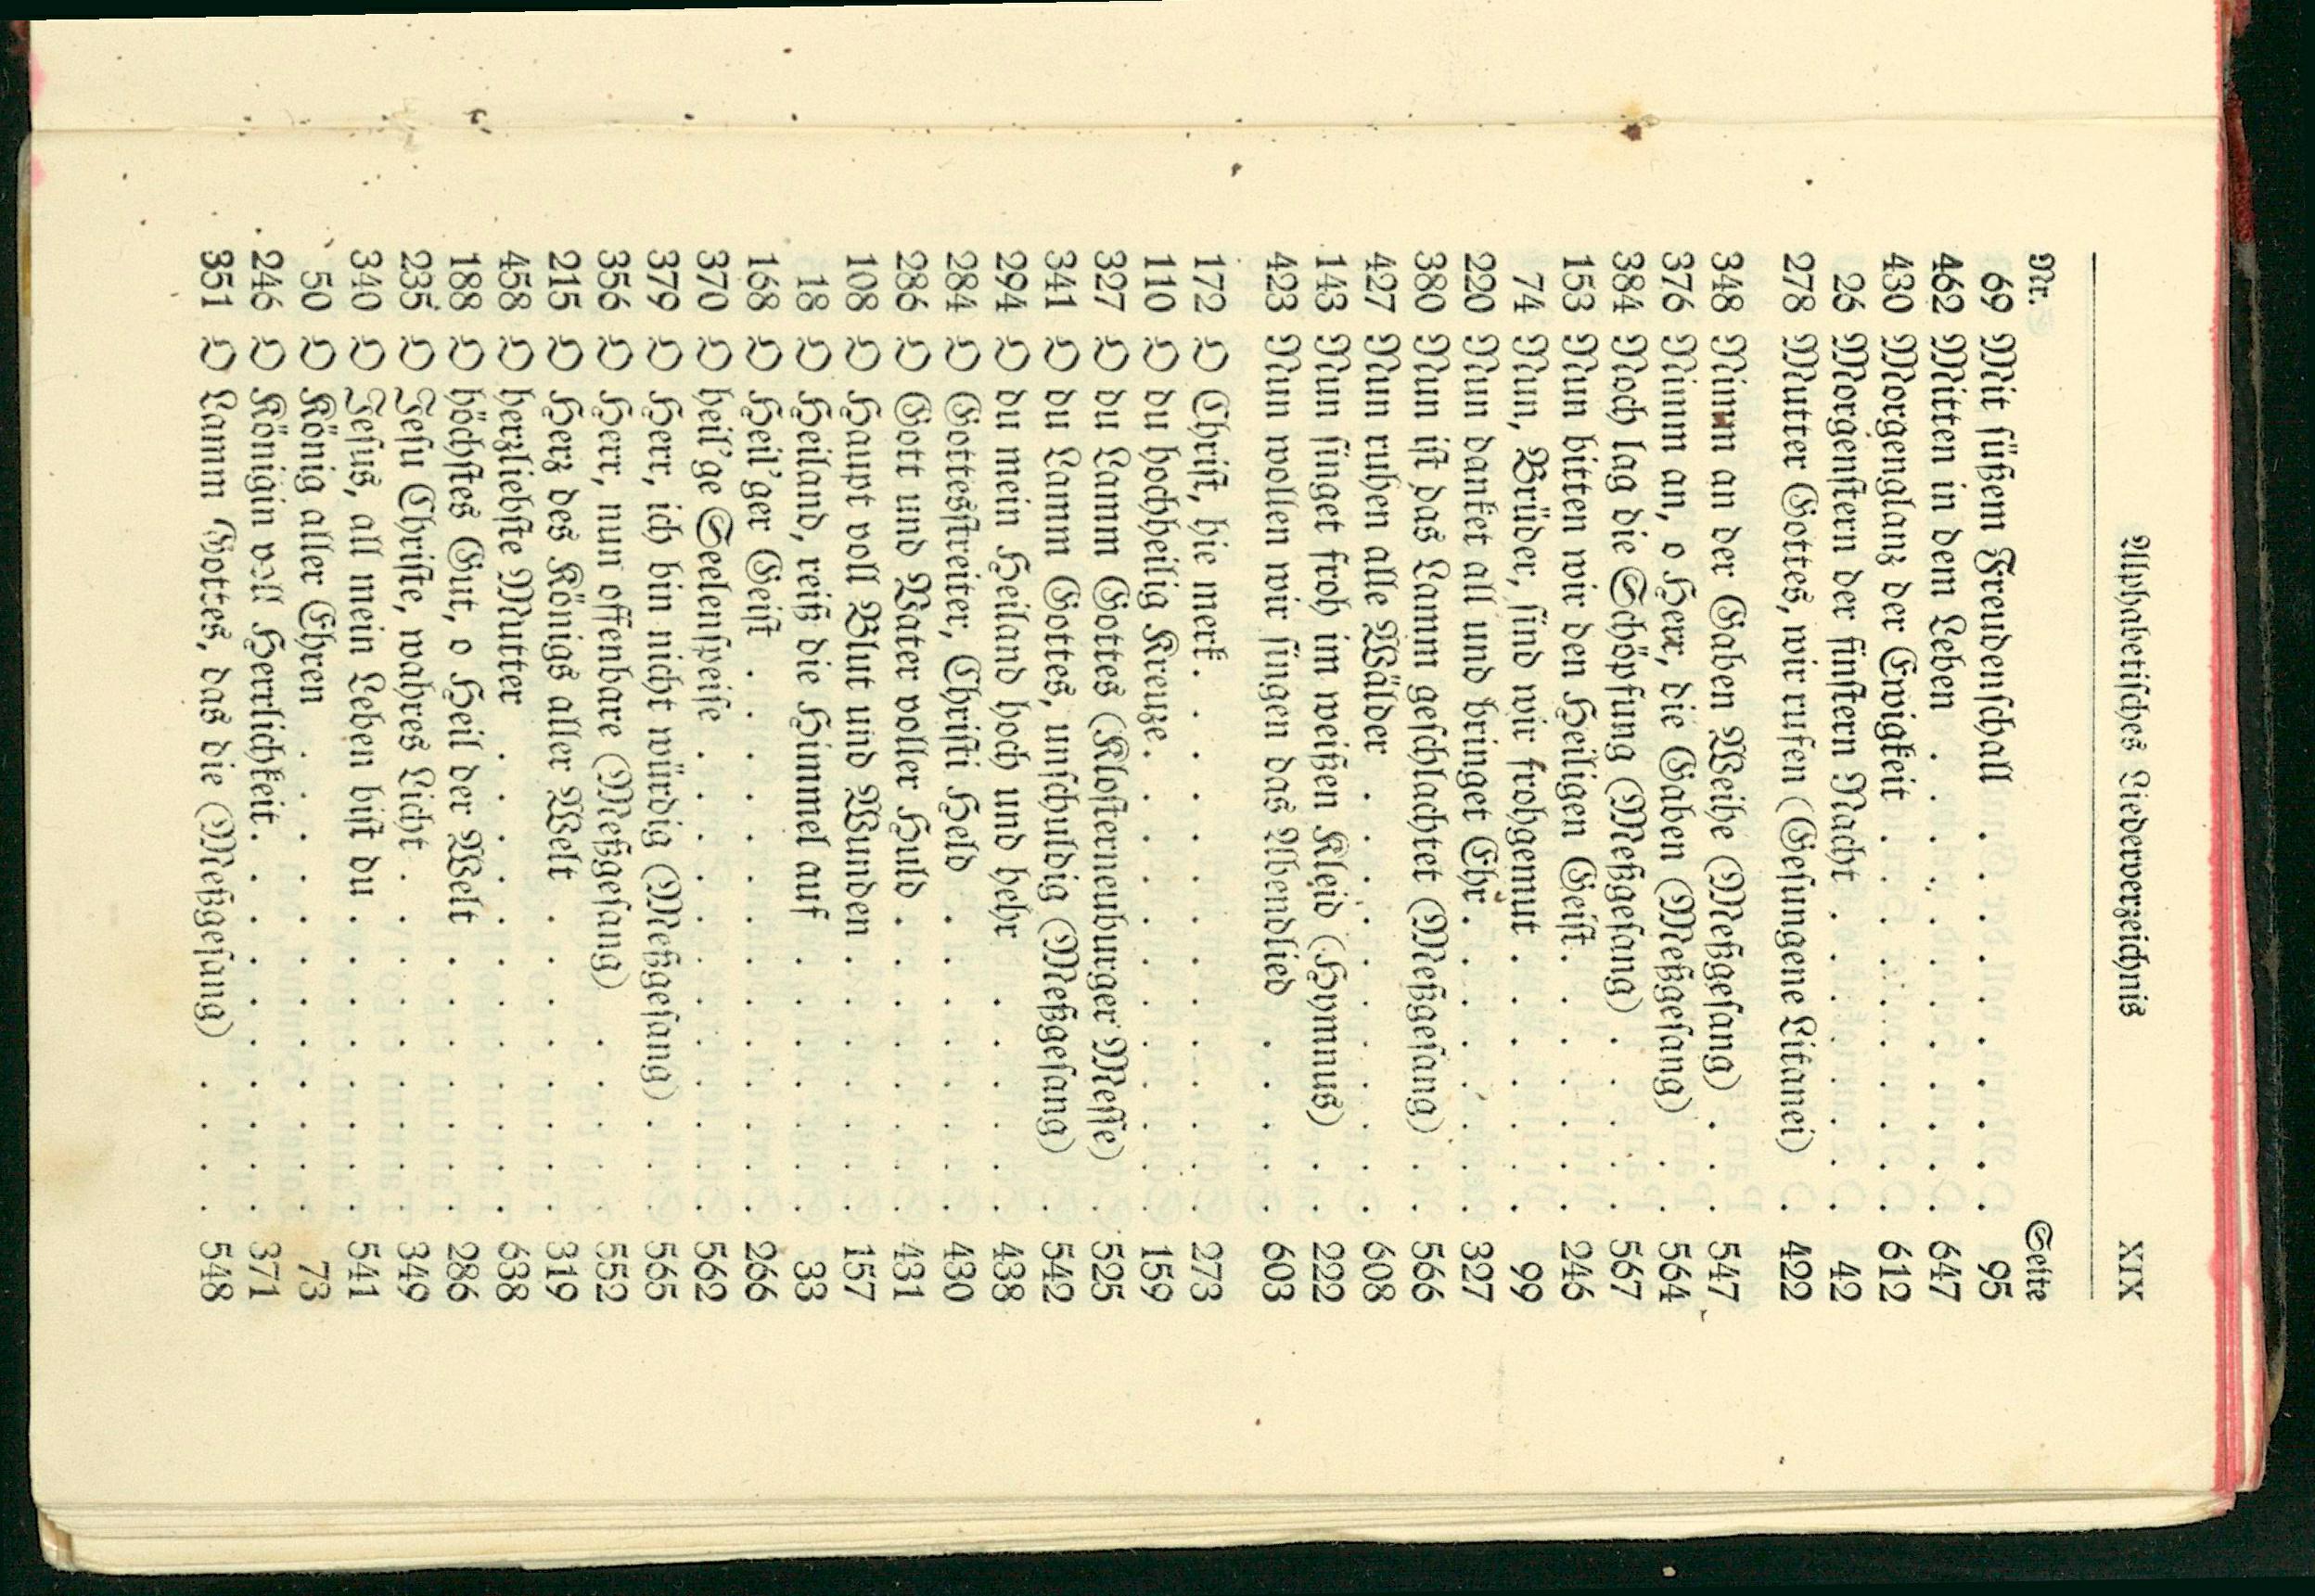 Alphabetisches Liederverzeichnis XIX
Nr. Seite
69 Mit süßem Freudenschall . . . . . . . . . . 95
462 Mitten in dem Leben . . . . . . . . . . . . 647
430 Morgenglanz der Ewigkeit . . . . . . . . . . 612
26 Morgenstern der finstern Nacht . . . . . . . . 42
278 Mutter Gottes, wir rufen (Gesungene Litanei) . . 422
348 Nimm an der Gaben Weihe (Meßgesang) . . . 547
376 Nimm an, o Herr, die Gaben (Meßgesang) . . 564
384 Noch lag die Schöpfung (Meßgesang) . . . . . 567
153 Nun bitten wir den Heiligen Geist . . . . . . . 246
74 Nun, Brüder, sind wir frohgemut . . . . . . . 99
220 Nun danket all und bringet Ehr . . . . . . . . 327
380 Nun ist das Lamm geschlachtet (Meßgesang) . . 566
427 Nun ruhen alle Wälder . . . . . . . . . . . 608
143 Nun singet froh im weißen Kleid (Hymnus) . . 222
423 Nun wollen wir singen das Abendlied . . . . . 603
172 O Christ, hie merk . . . . . . . . . . . . . . 273
110 O du hochheilig Kreuze . . . . . . . . . . . . 159
327 O du Lamm Gottes (Klosterneuburger Messe) . . 525
341 O du Lamm Gottes, unschuldig (Meßgesang) . . 542
294 O du mein Heiland hoch und hehr . . . . . . 438
284 O Gottesstreiter, Christi Held . . . . . . . . 430
286 O Gott und Vater voller Huld . . . . . . . . 431
108 O Haupt voll Blut und Wunden . . . . . . . 157
18 O Heiland, reiß die Himmel auf . . . . . . . . 33
168 O Heil'ger Geist . . . . . . . . . . . . . . 266
370 O heil'ge Seelenspeise . . . . . . . . . . . . 562
379 O Herr, ich bin nicht würdig (Meßgesang) . . . 565
356 O Herr, nun offenbare (Meßgesang) . . . . . 552
215 O Herz des Königs aller Welt . . . . . . . . 319
458 O herzliebste Mutter . . . . . . . . . . . . 638
188 O höchstes Gut, o Heil der Welt . . . . . . . 286
235 O Jesu Christe, wahres Licht . . . . . . . . . 349
340 O Jesus, all mein Leben bist du . . . . . . . . 541
50 O König aller Ehren . . . . . . . . . . . . 73
246 O Königin voll Herrlichkeit . . . . . . . . . . 371
351 O Lamm Gottes, das die (Meßgesang) . . . . 548